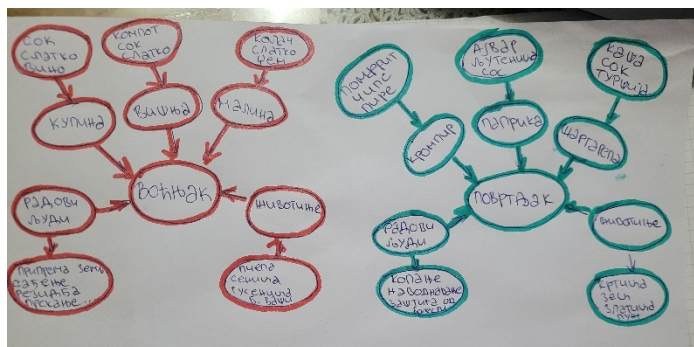 сок
слатко
вино
компот
сок
слатко
колач
слатко
џем
купина
вишња
малина
воћњак
радови
људи
животиње
припрема земљ.
сађење
резидба
прскање...
пчела
сеница
гусеница
б. ваши
помфрит
чипс
пире
ајвар
љутеница
сос
каша
сок
туршија
кромпир
паприка
шаргарепа
повртњак
радови
људи
животиње
копање
наводњавање
заштита од
болести
кртица
зец
златица
пуж